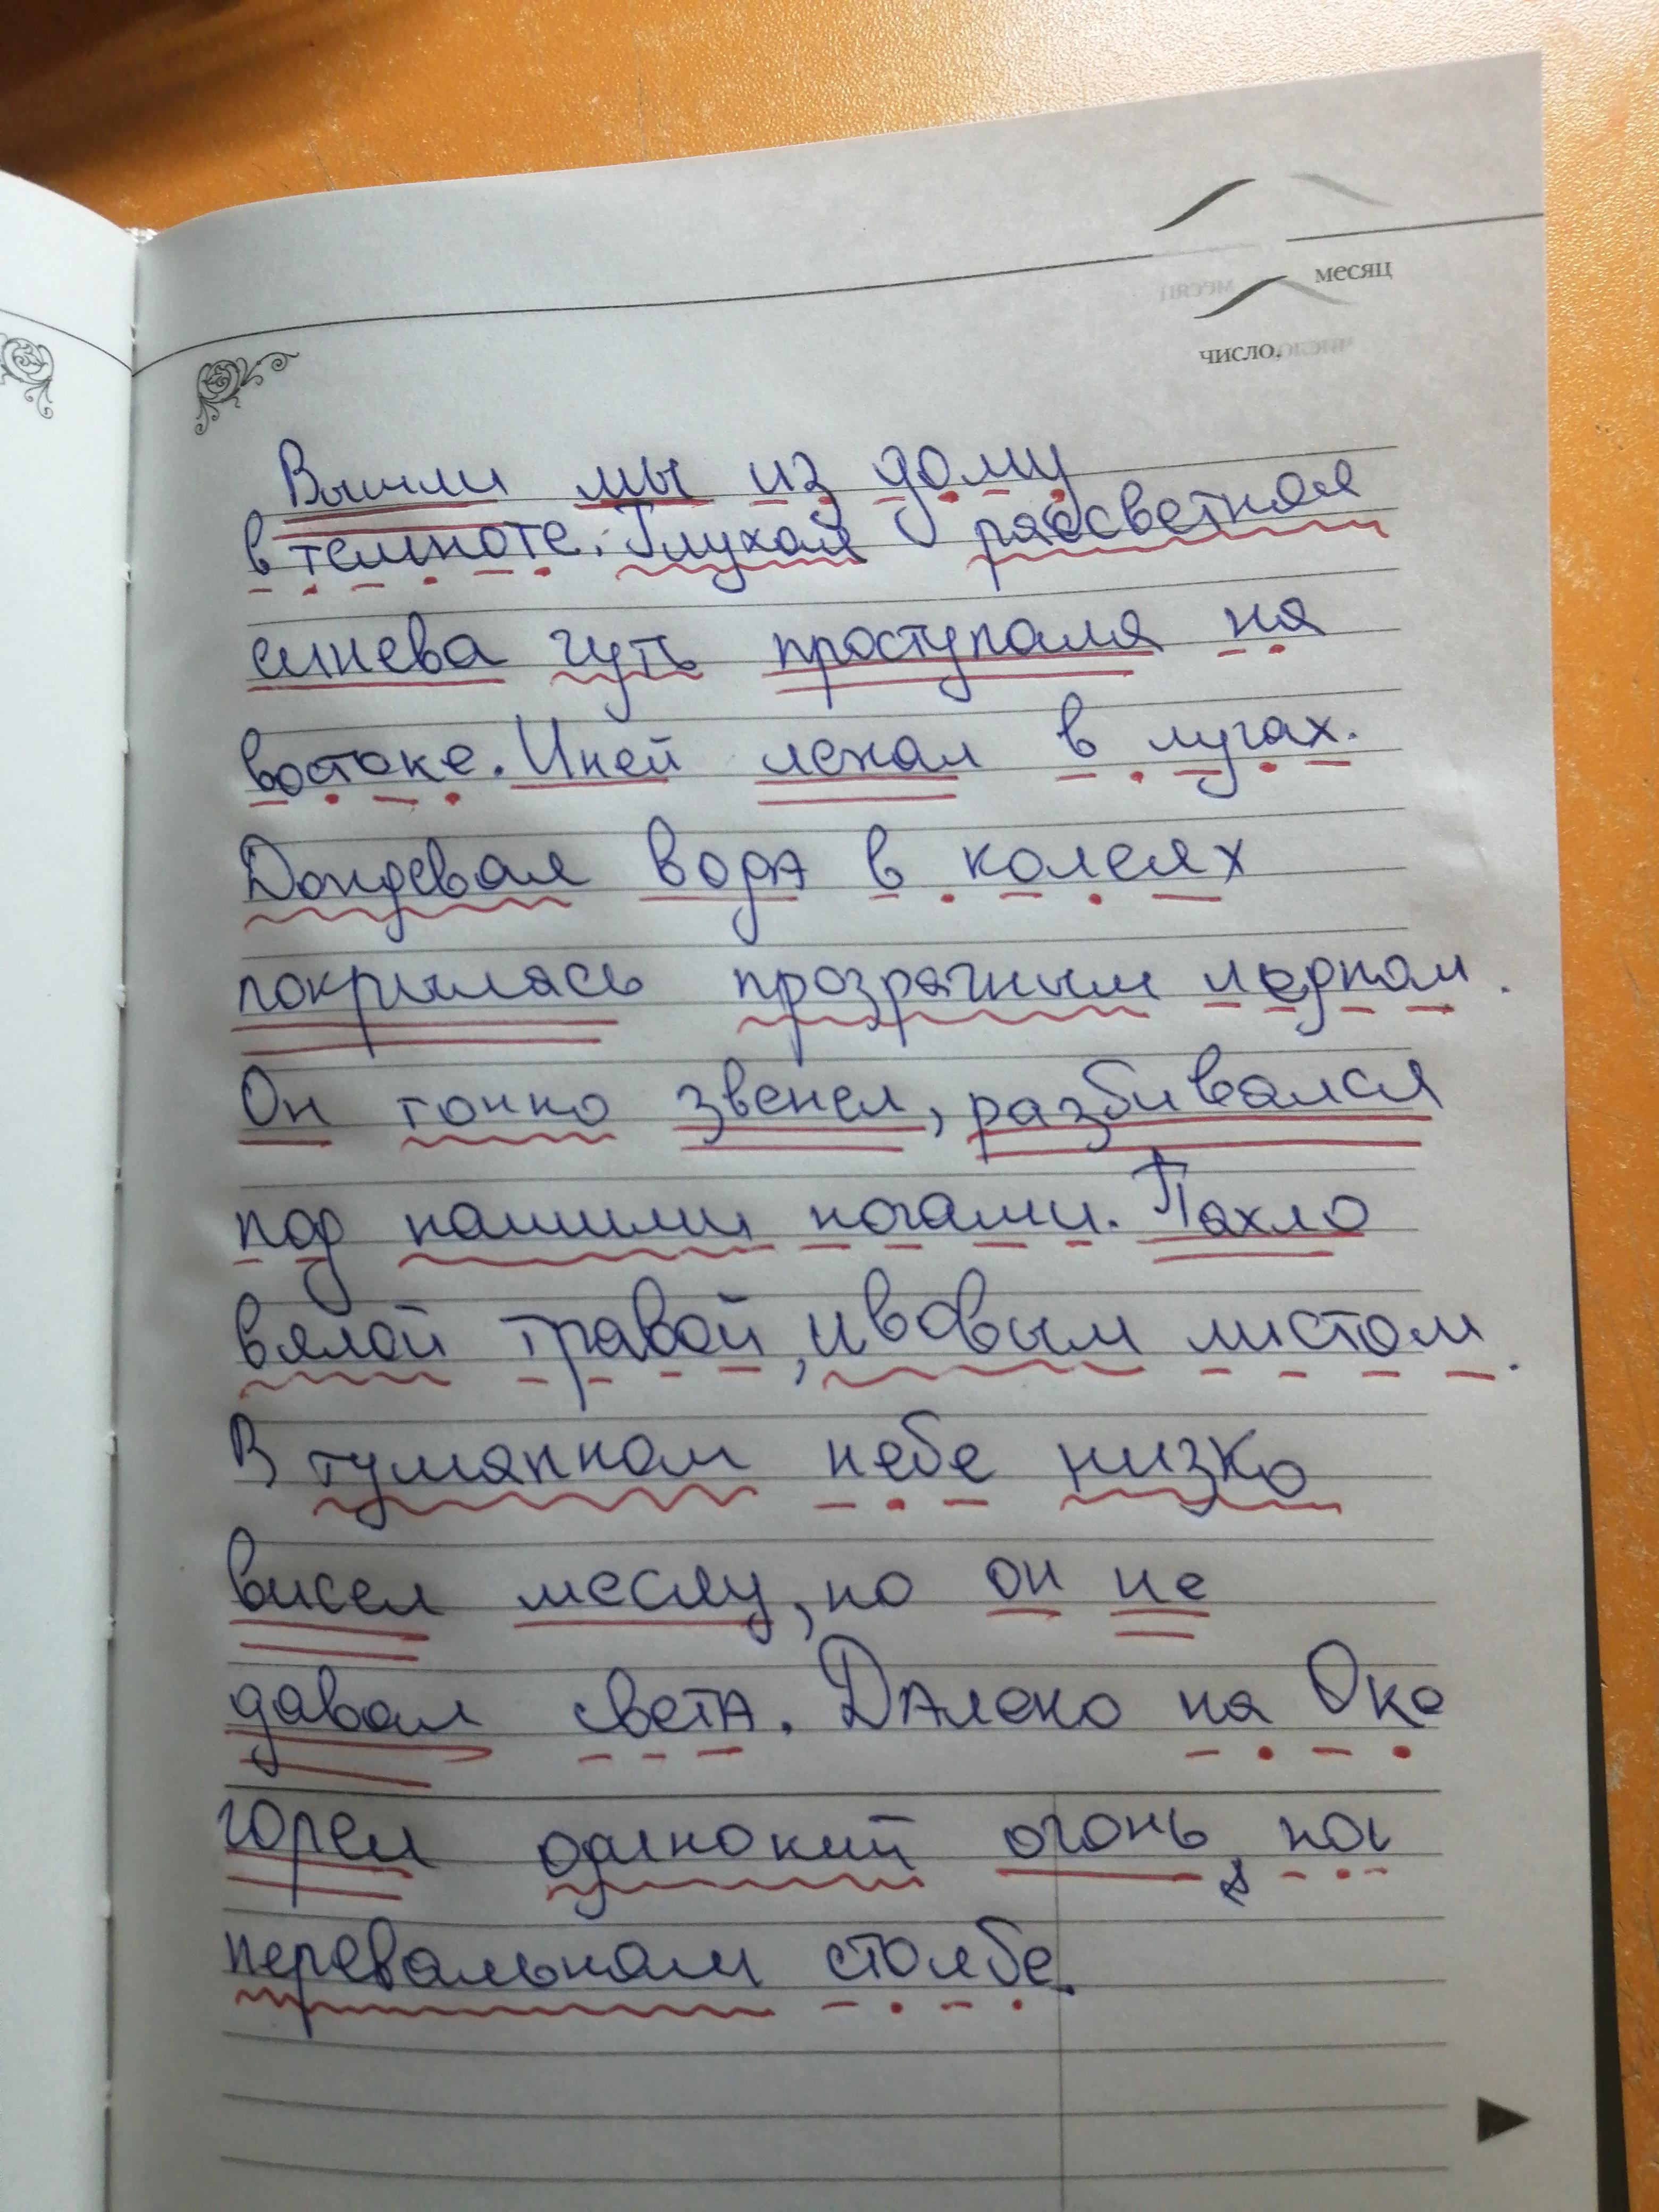 месяц
число
Вышли мы из дому
в темноте. Глухая рассветная
синева чуть проступала на
востоке. Иней лежал в лугах.
Дождевая вода в колеях
покрылась прозрачным ледком.
Он тонко звенел, разбивался
под нашими ногами. Пахло
вялой травой, ивовым листом.
В туманном небе низко
висел месяц, но он не
давал света. Далеко на Оке
горел одинокий огонь на
перевальном столбе.